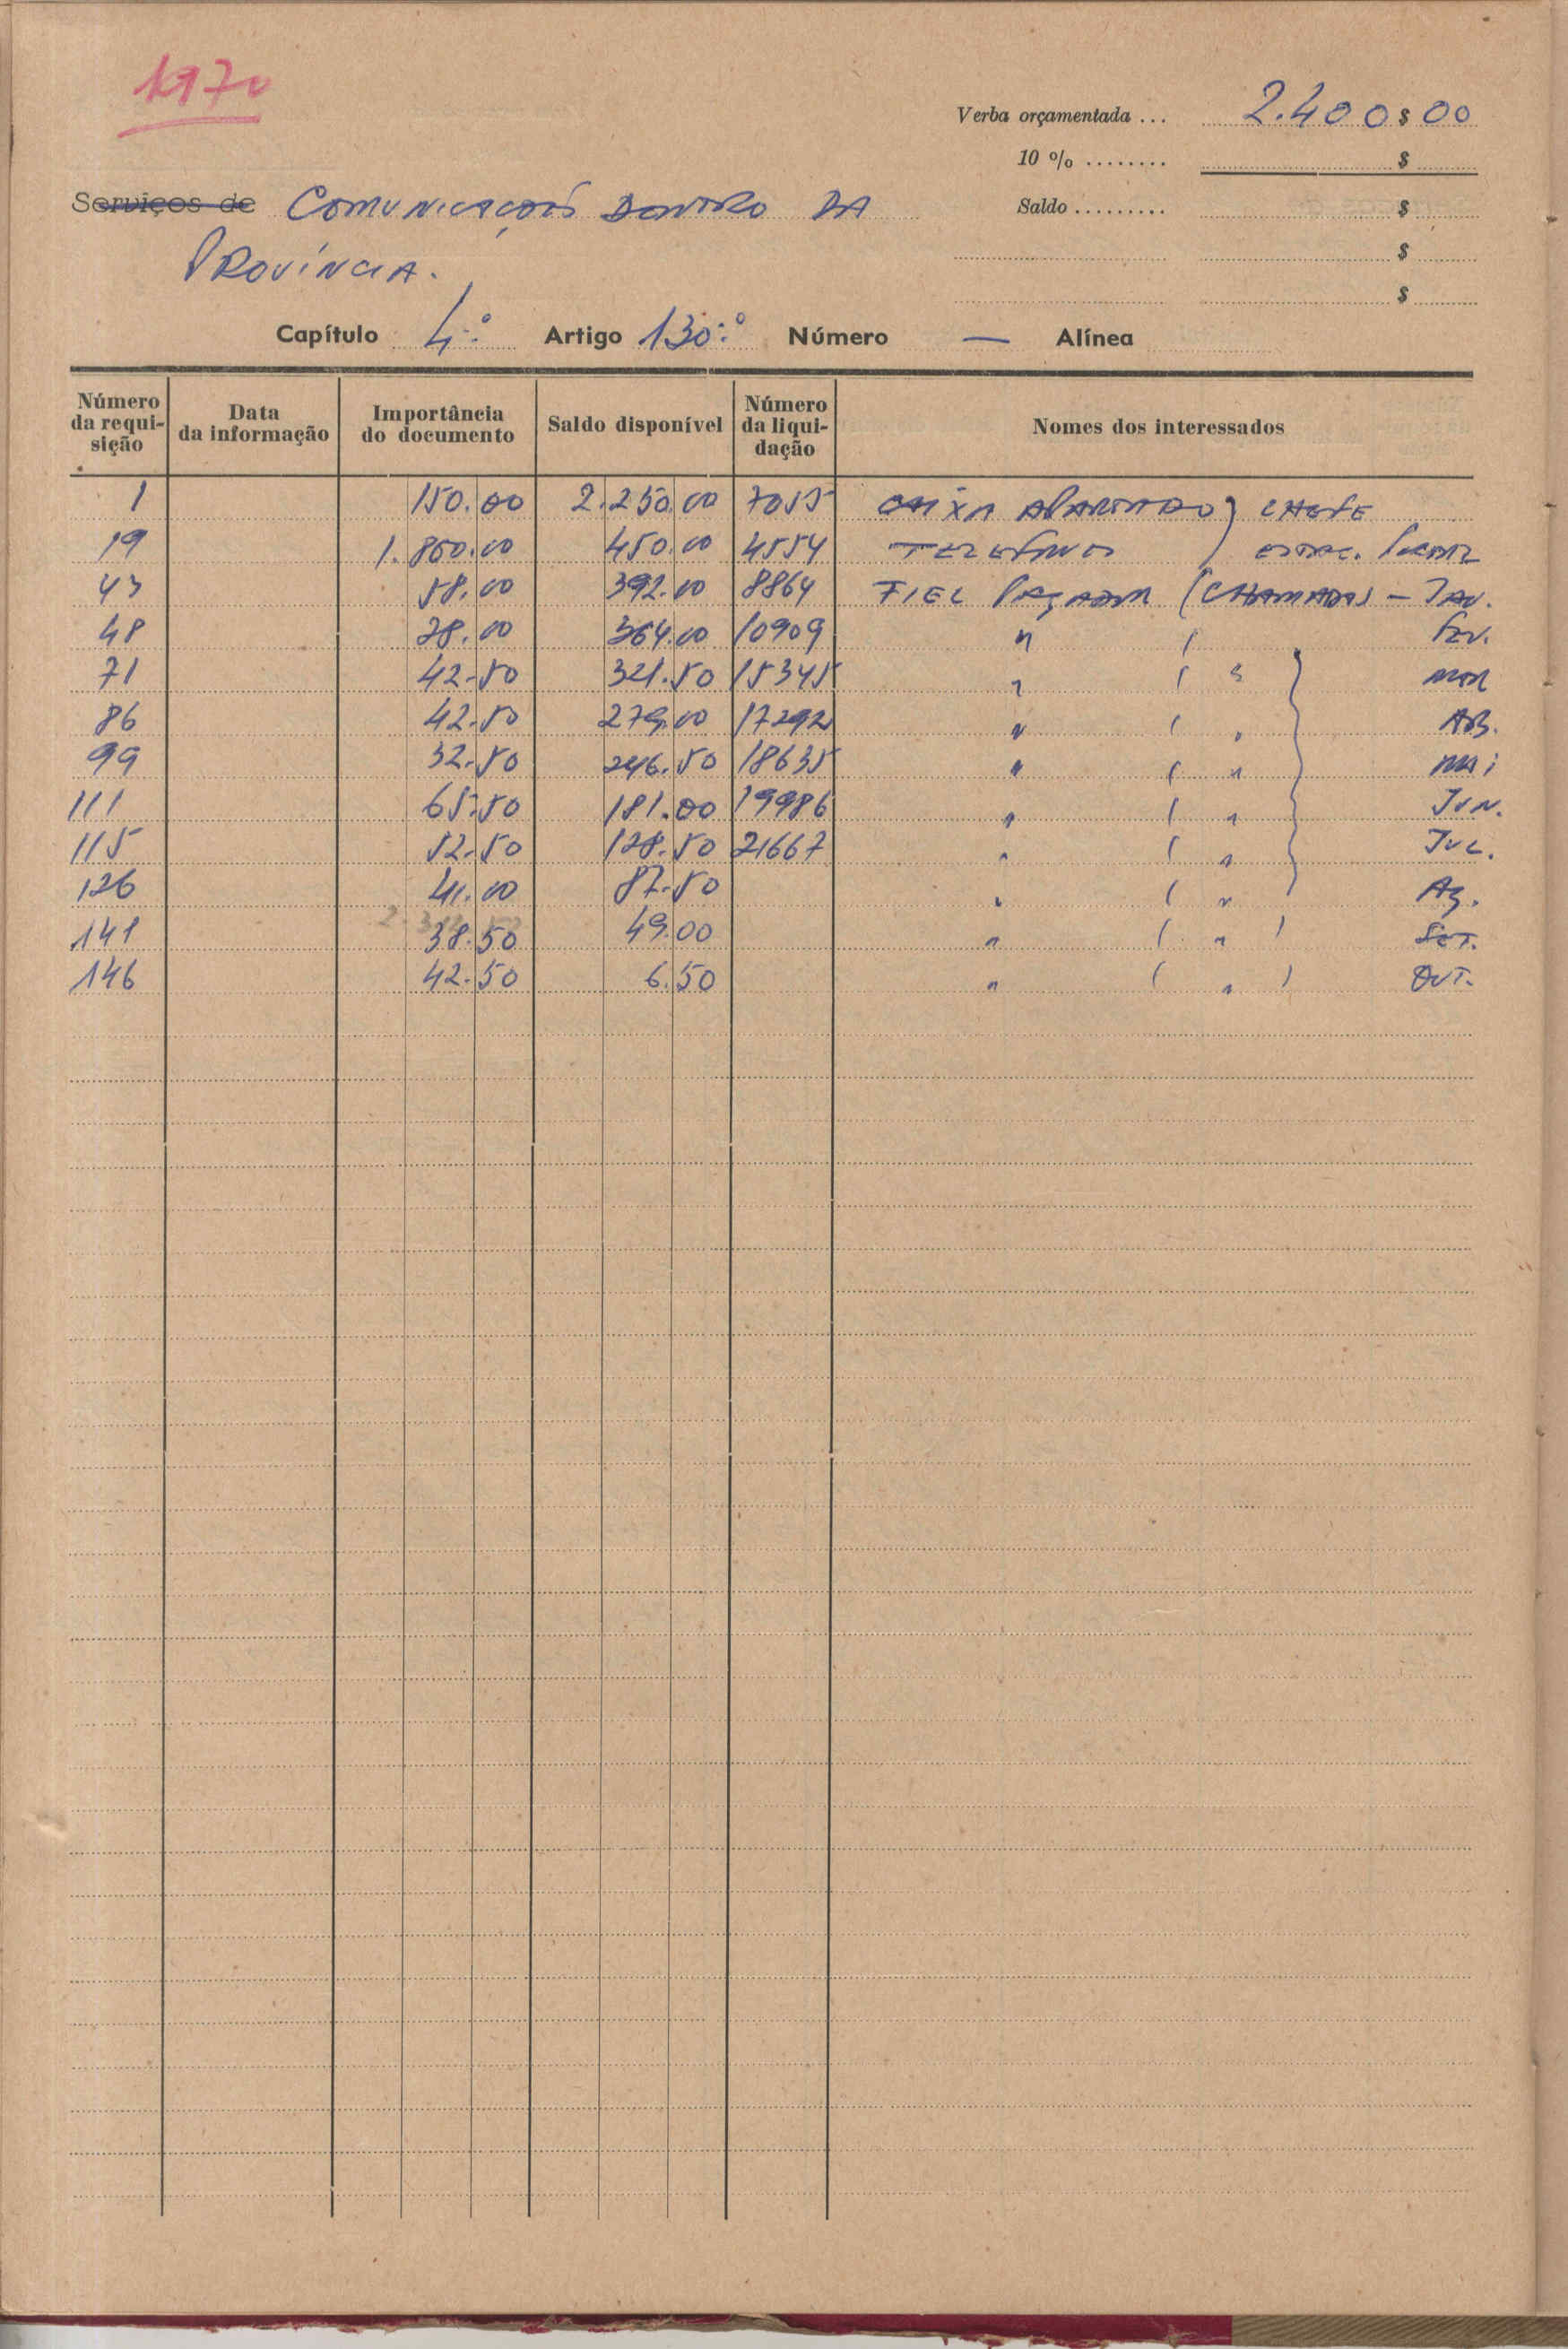 1970
Verba orçamentada ... 2.400$00
10 % ........ $
Serviços de COMUNICAÇÕES DENTRO DA
Saldo ......... $
PROVÍNCIA.
$
$
Capítulo 4.º Artigo 130.º Número — Alínea
Número da requi-sição Data da informação Importância do documento Saldo disponível Número da liqui-dação Nomes dos interessados
1 150.00 2.250.00 7055 CAIXA APARTADO) CHEFE
19 1.800.00 450.00 4554 TELEFONES )
43 58.00 392.00 8864 FIEL PAGADOR (CHAMADAS - JAN.
48 28.00 364.00 10909 " ( FEV.
71 42.50 321.50 15345 " ( " ) MAR
86 42.50 279.00 17292 " ( " ) AB.
99 32.50 246.50 18635 " ( " ) MAI
111 65.50 181.00 19986 " ( " ) JUN.
115 52.50 128.50 21667 " ( " ) JUL.
126 41.00 87.50 " ( " ) AG.
141 38.50 49.00 " ( " ) SET.
146 42.50 6.50 " ( " ) OUT.